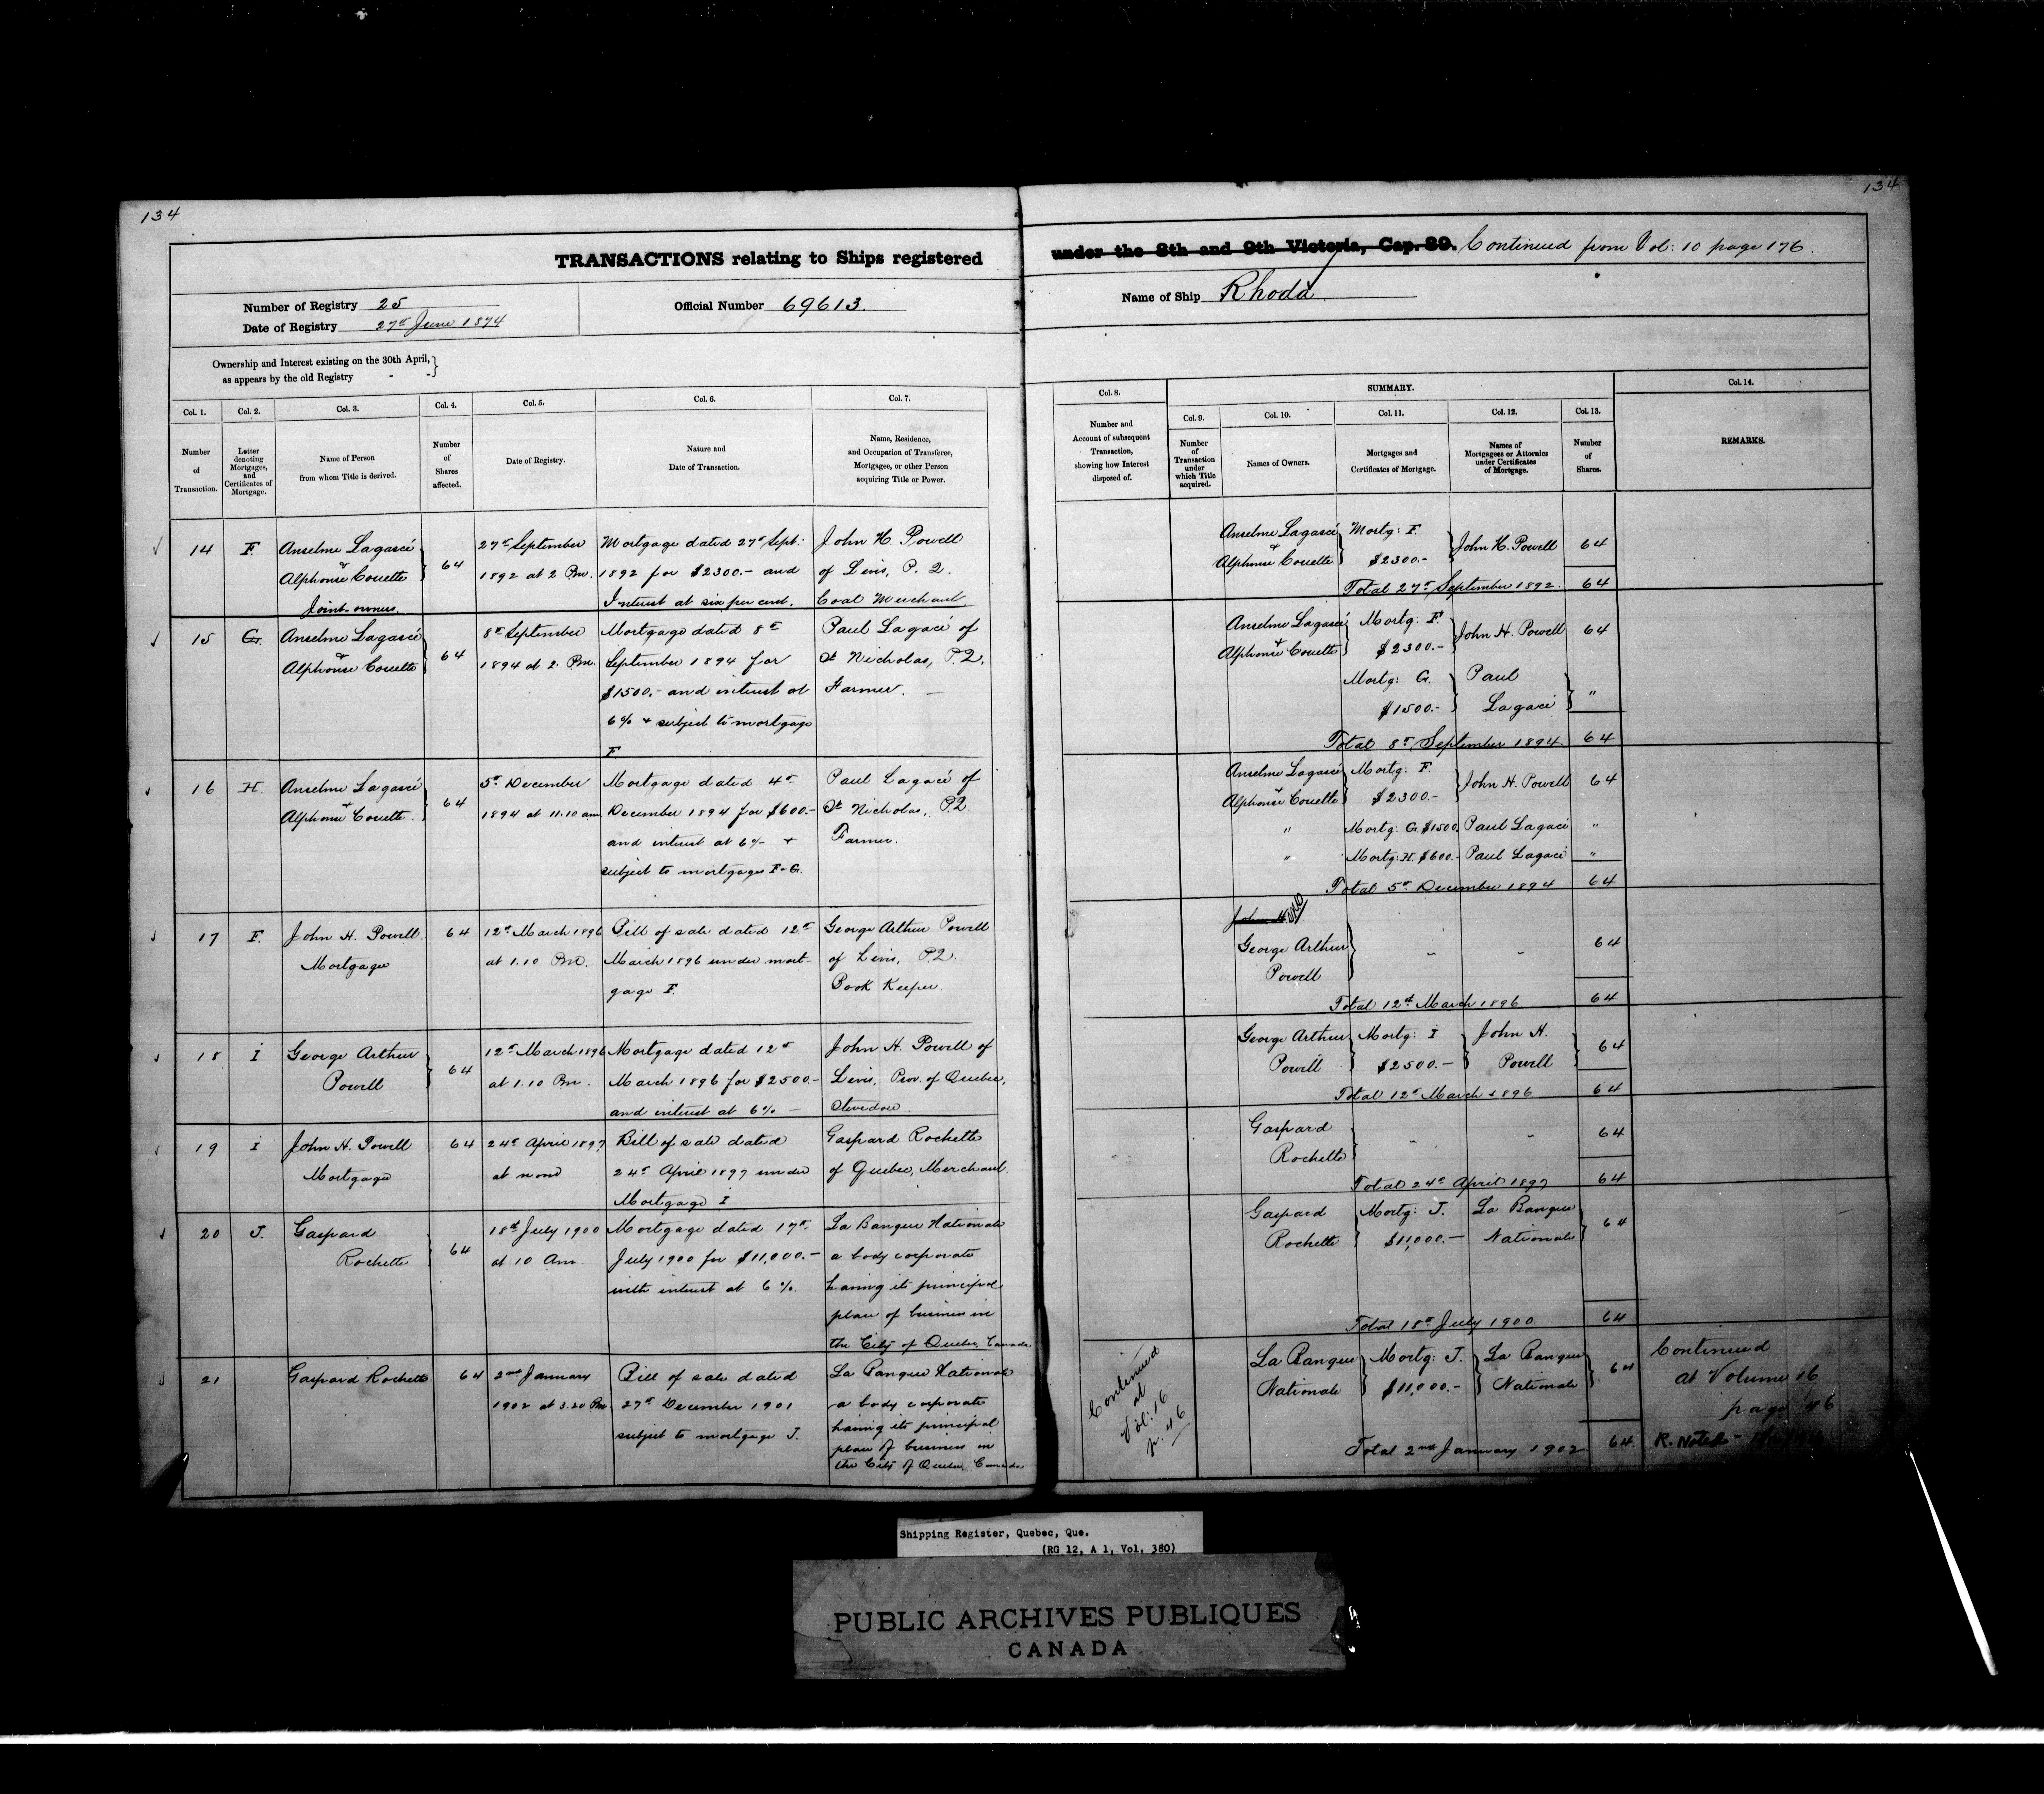 134
134
TRANSACTIONS relating to Ships registered under the 8th and 9th Victoria, Cap. 89. Continued from Vol: 10 page 176.
Number of Registry 25
Date of Registry 27th June 1874
Official Number 69613.
Name of Ship Rhoda
Ownership and Interest existing on the 30th April,
as appears by the old Registry - -
Col. 1. Number of Transaction.
Col. 2. Letter denoting Mortgages, and Certificates of Mortgage.
Col. 3. Name of Person from whom Title is derived.
Col. 4. Number of Shares affected.
Col. 5. Date of Registry.
Col. 6. Nature and Date of Transaction.
Col. 7. Name, Residence, and Occupation of Transferee, Mortgagee, or other Person acquiring Title or Power.
Col. 8. Number and Account of subsequent Transaction, showing how Interest disposed of.
SUMMARY.
Col. 9. Number of Transaction under which Title acquired.
Col. 10. Names of Owners.
Col. 11. Mortgages and Certificates of Mortgage.
Col. 12. Names of Mortgagees or Attornies under Certificates of Mortgage.
Col. 13. Number of Shares.
Col. 14. REMARKS.
14 F. Anselme Lagacé & Alphonse Couette Joint owners. 64
27th September 1892 at 2 Pm.
Mortgage dated 27th Sept: 1892 for $2300.- and Interest at six per cent.
John H. Powell of Levis, P. Q. Coal Merchant.
Anselme Lagacé & Alphonse Couette Mortg: F. $2300.- John H. Powell 64
Total 27th September 1892. 64
15 G. Anselme Lagacé & Alphonse Couette 64
8th September 1894 at 2. Pm.
Mortgage dated 8th September 1894 for $1500.- and interest at 6% & subject to mortgage F
Paul Lagacé of St Nicholas, P.Q. Farmer. -
Anselme Lagacé & Alphonse Couette Mortg: F. $2300.- John H. Powell 64
Mortg: G. $1500.- Paul Lagacé "
Total 8th September 1894. 64
16 H. Anselme Lagacé & Alphonse Couette. 64
5th December 1894 at 11.10 am.
Mortgage dated 4th December 1894 for $600.- and interest at 6% & subject to mortgages F-G.
Paul Lagacé of St Nicholas, P.Q. Farmer.
Anselme Lagacé & Alphonse Couette Mortg: F. $2300.- John H. Powell 64
" Mortg: G. $1500. Paul Lagacé "
" Mortg: H. $600.- Paul Lagacé "
Total 5th December 1894 64
17 F. John H. Powell Mortgagee 64
12th March 1896 at 1.10 Pm.
Bill of sale dated 12th March 1896 under mortgage F.
George Arthur Powell of Levis, P.Q. Book Keeper.
John H.
George Arthur Powell " " 64
Total 12th March 1896 64
18 I George Arthur Powell 64
12th March 1896 at 1.10 Pm.
Mortgage dated 12th March 1896 for $2500.- and interest at 6% -
John H. Powell of Levis, Prov. of Quebec, Stevedore.
George Arthur Powell Mortg: I $2500.- John H. Powell 64
Total 12th March 1896 64
19 I John H. Powell Mortgagee 64
24th April 1897 at noon
Bill of sale dated 24th April 1897 under Mortgage I
Gaspard Rochette of Quebec, Merchant.
Gaspard Rochette " " 64
Total 24th April 1897 64
20 J. Gaspard Rochette 64
18th July 1900 at 10 Am.
Mortgage dated 17th July 1900 for $11,000.- with interest at 6%.
La Banque Nationale a body corporate having its principal place of business in the City of Quebec, Canada.
Gaspard Rochette Mortg: J. $11,000.- La Banque Nationale 64
Total 18th July 1900 64
21 Gaspard Rochette 64
2nd January 1902 at 3.20 Pm.
Bill of sale dated 27th December 1901 subject to mortgage J.
La Banque Nationale a body corporate having its principal place of business in the City of Quebec, Canada
Continued at Vol: 16 p. 46
La Banque Nationale Mortg: J. $11,000.- La Banque Nationale 64
Total 2nd January 1902 64
Continued
at Volume 16
page 46
R. Noted
Shipping Register, Quebec, Que.
(RG 12, A 1, Vol. 380)
PUBLIC ARCHIVES PUBLIQUES
CANADA